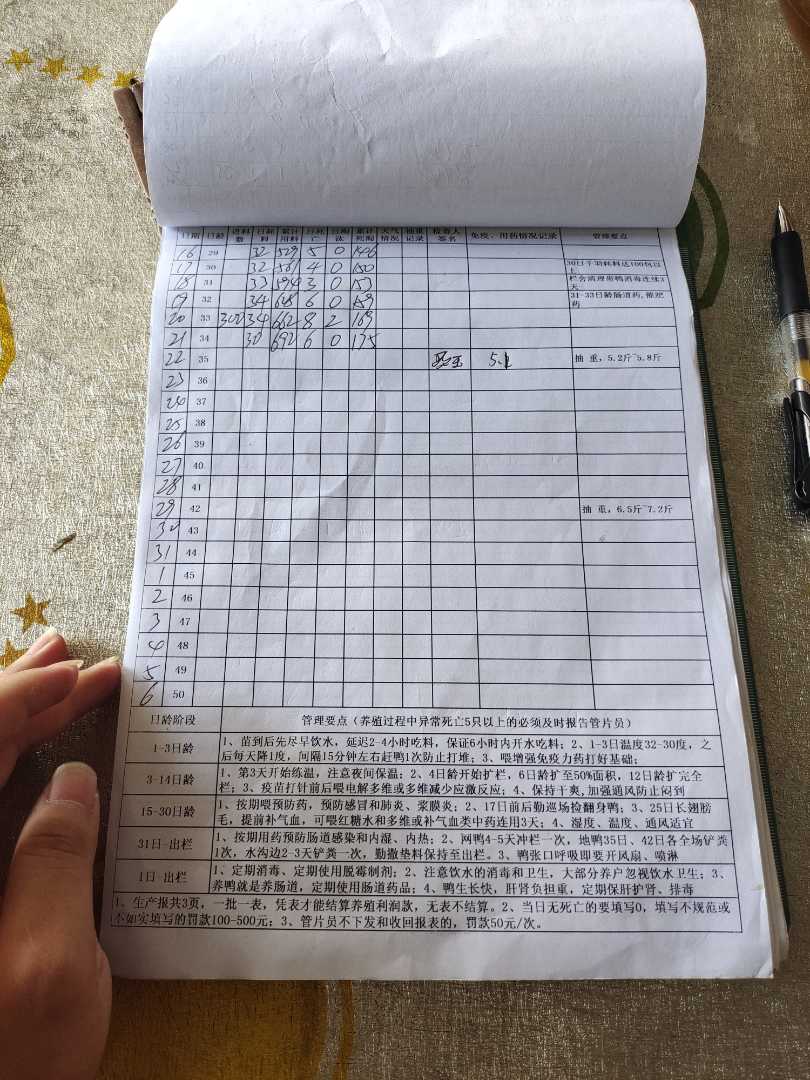 日期 日龄 进料数 日耗料 累计用料 日死亡 日淘汰 累计死淘 天气情况 抽重记录 检查人签名 免疫、用药情况记录 管理要点
16 29 32 529 5 0 146
17 30 32 561 4 0 150 30日千羽耗料达100包以上
18 31 33 594 3 0 153 栏舍清理带鸭消毒连续3天
19 32 34 628 6 0 159 31-33日龄肠道药,催肥药
20 33 300 34 662 8 2 169
21 34 30 692 6 0 175
22 35 5.1 抽 重,5.2斤~5.8斤
23 36
24 37
25 38
26 39
27 40
28 41
29 42 抽 重,6.5斤~7.2斤
30 43
31 44
1 45
2 46
3 47
4 48
5 49
6 50
日龄阶段 管理要点（养殖过程中异常死亡5只以上的必须及时报告管片员）
1-3日龄 1、苗到后先尽早饮水，延迟2-4小时吃料，保证6小时内开水吃料；2、1-3日温度32-30度，之
后每天降1度，间隔15分钟左右赶鸭1次防止打堆；3、喂增强免疫力药打好基础；
3-14日龄 1、第3天开始练温，注意夜间保温；2、4日龄开始扩栏，6日龄扩至50%面积，12日龄扩完全
栏；3、疫苗打针前后喂电解多维或多维减少应激反应；4、保持干爽,加强通风防止闷到
15-30日龄 1、按期喂预防药，预防感冒和肺炎、浆膜炎；2、17日前后勤巡场捡翻身鸭；3、25日长翅膀
毛，提前补气血，可喂红糖水和多维或补气血类中药连用3天；4、湿度、温度、通风适宜
31日-出栏 1、按期用药预防肠道感染和内湿、内热；2、网鸭4-5天冲栏一次，地鸭35日、42日各全场铲粪
1次，水沟边2-3天铲粪一次，勤撒垫料保持至出栏。3、鸭张口呼吸即要开风扇、喷淋
1日-出栏 1、定期消毒、定期使用脱霉制剂；2、注意饮水的消毒和卫生，大部分养户忽视饮水卫生；3、
养鸭就是养肠道，定期使用肠道药品；4、鸭生长快，肝肾负担重，定期保肝护肾、排毒
1、生产报共3页，一批一表，凭表才能结算养殖利润款，无表不结算。2、当日无死亡的要填写0，填写不规范或
不如实填写的罚款100-500元；3、管片员不下发和收回报表的，罚款50元/次。